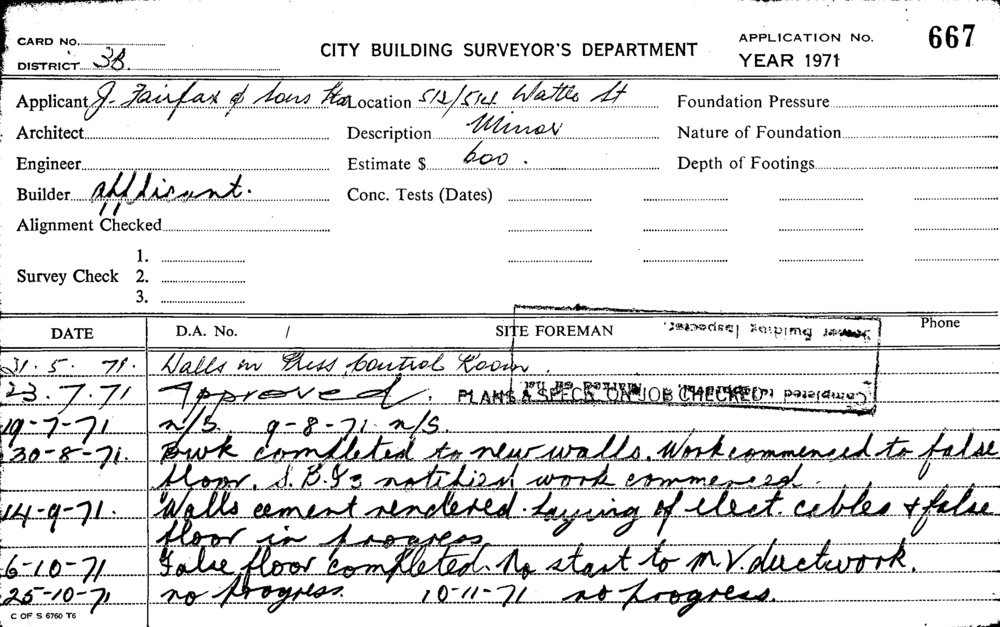 CARD No.
DISTRICT 3B.
CITY BUILDING SURVEYOR'S DEPARTMENT
APPLICATION No. 667
YEAR 1971
Applicant J. Fairfax & Sons Location 512/514 Wattle St Foundation Pressure
Architect Description Minor Nature of Foundation
Engineer Estimate $ 600. Depth of Footings
Builder applicant. Conc. Tests (Dates)
Alignment Checked
Survey Check 1.
2.
3.
DATE D.A. No. / SITE FOREMAN Phone
Senior Building Inspector.
31. 5. 71. Walls in Press Control Room.
23. 7. 71 Approved. PLANS & SPECS. ON JOB CHECKED
Completed
19-7-71 n/S. 9-8-71 n/S.
30-8-71. Bwk completed to new walls. Work commenced to false
floor. S.B.I. notified work commenced.
14-9-71. Walls cement rendered. Laying of elect. cables & false
floor in progress.
6-10-71 False floor completed. No start to M.V. ductwork.
25-10-71 no progress. 10-11-71 no progress.
C OF S 6760 T6